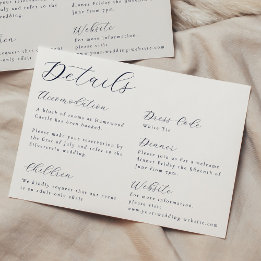 For more information,
please visit:
www.your-wedding-website.com
Details
Accomodation
A block of rooms at Homewood
Castle has been booked.
Please make your reservation by
the 1st of July and refer to the
Silverstein wedding.
Children
We kindly request that our event
is an adult only event.
Dress Code
White Tie
Dinner
Please join us for a welcome
dinner Friday the fifteenth of
June from 7pm.
Website
For more information,
please visit:
www.your-wedding-website.com